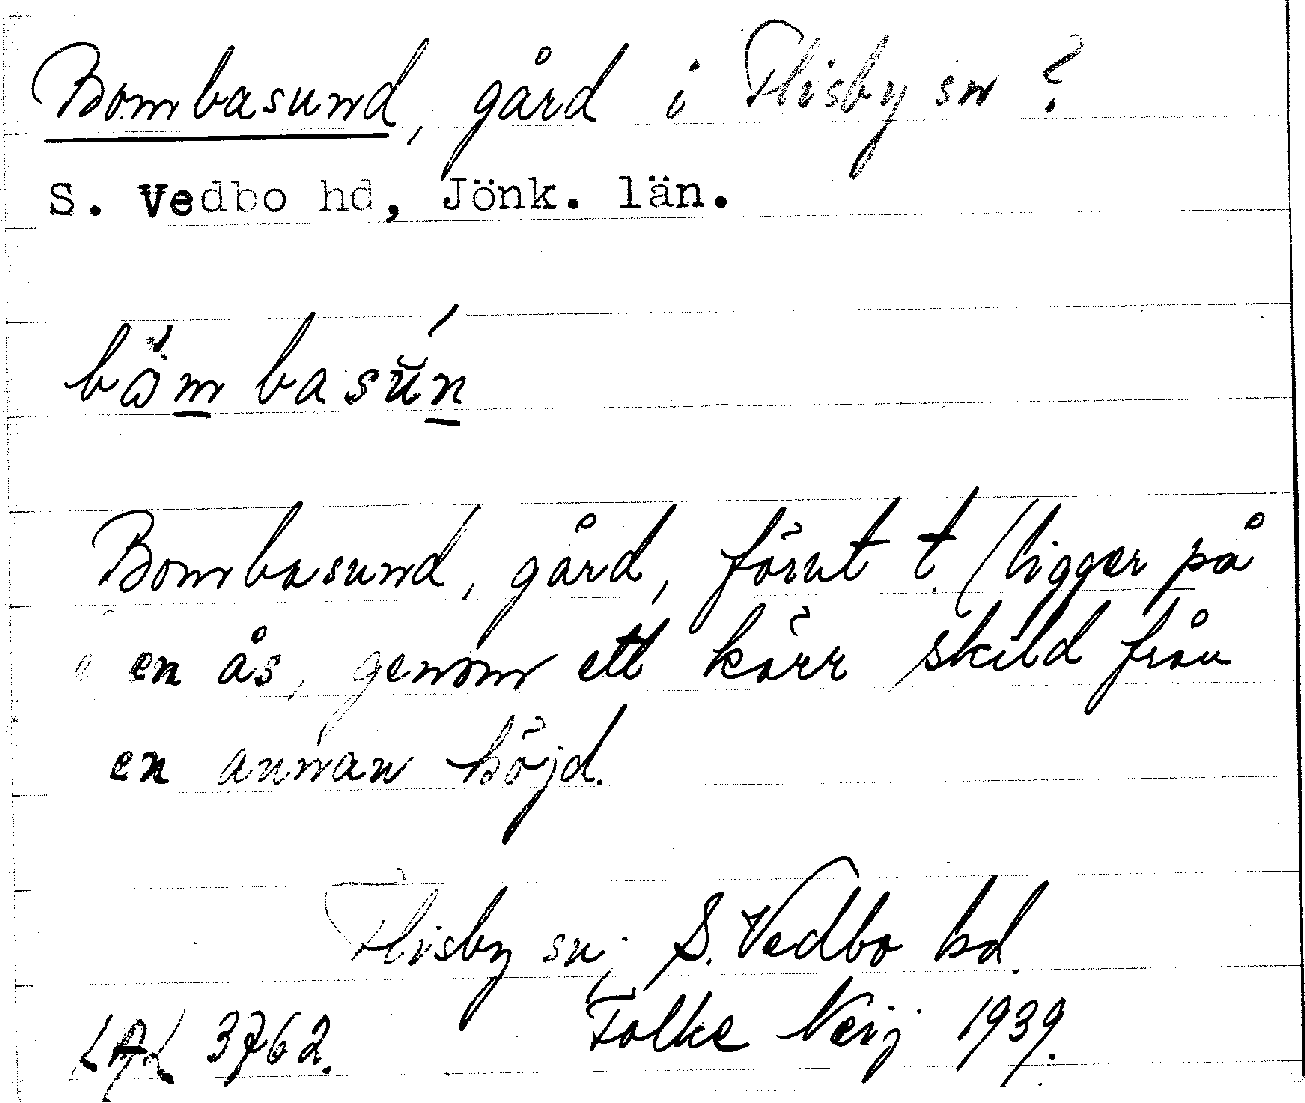 Bombasund, gård i Flisby sn ?
S. Vedbo hd, Jönk. län.
båm basún
Bombasund, gård, förut t. (ligger på
en ås, genom ett kärr skild från
en annan höjd.
Flisby sn; S. Vedbo hd.
LAL 3762. Folke Neij 1939.